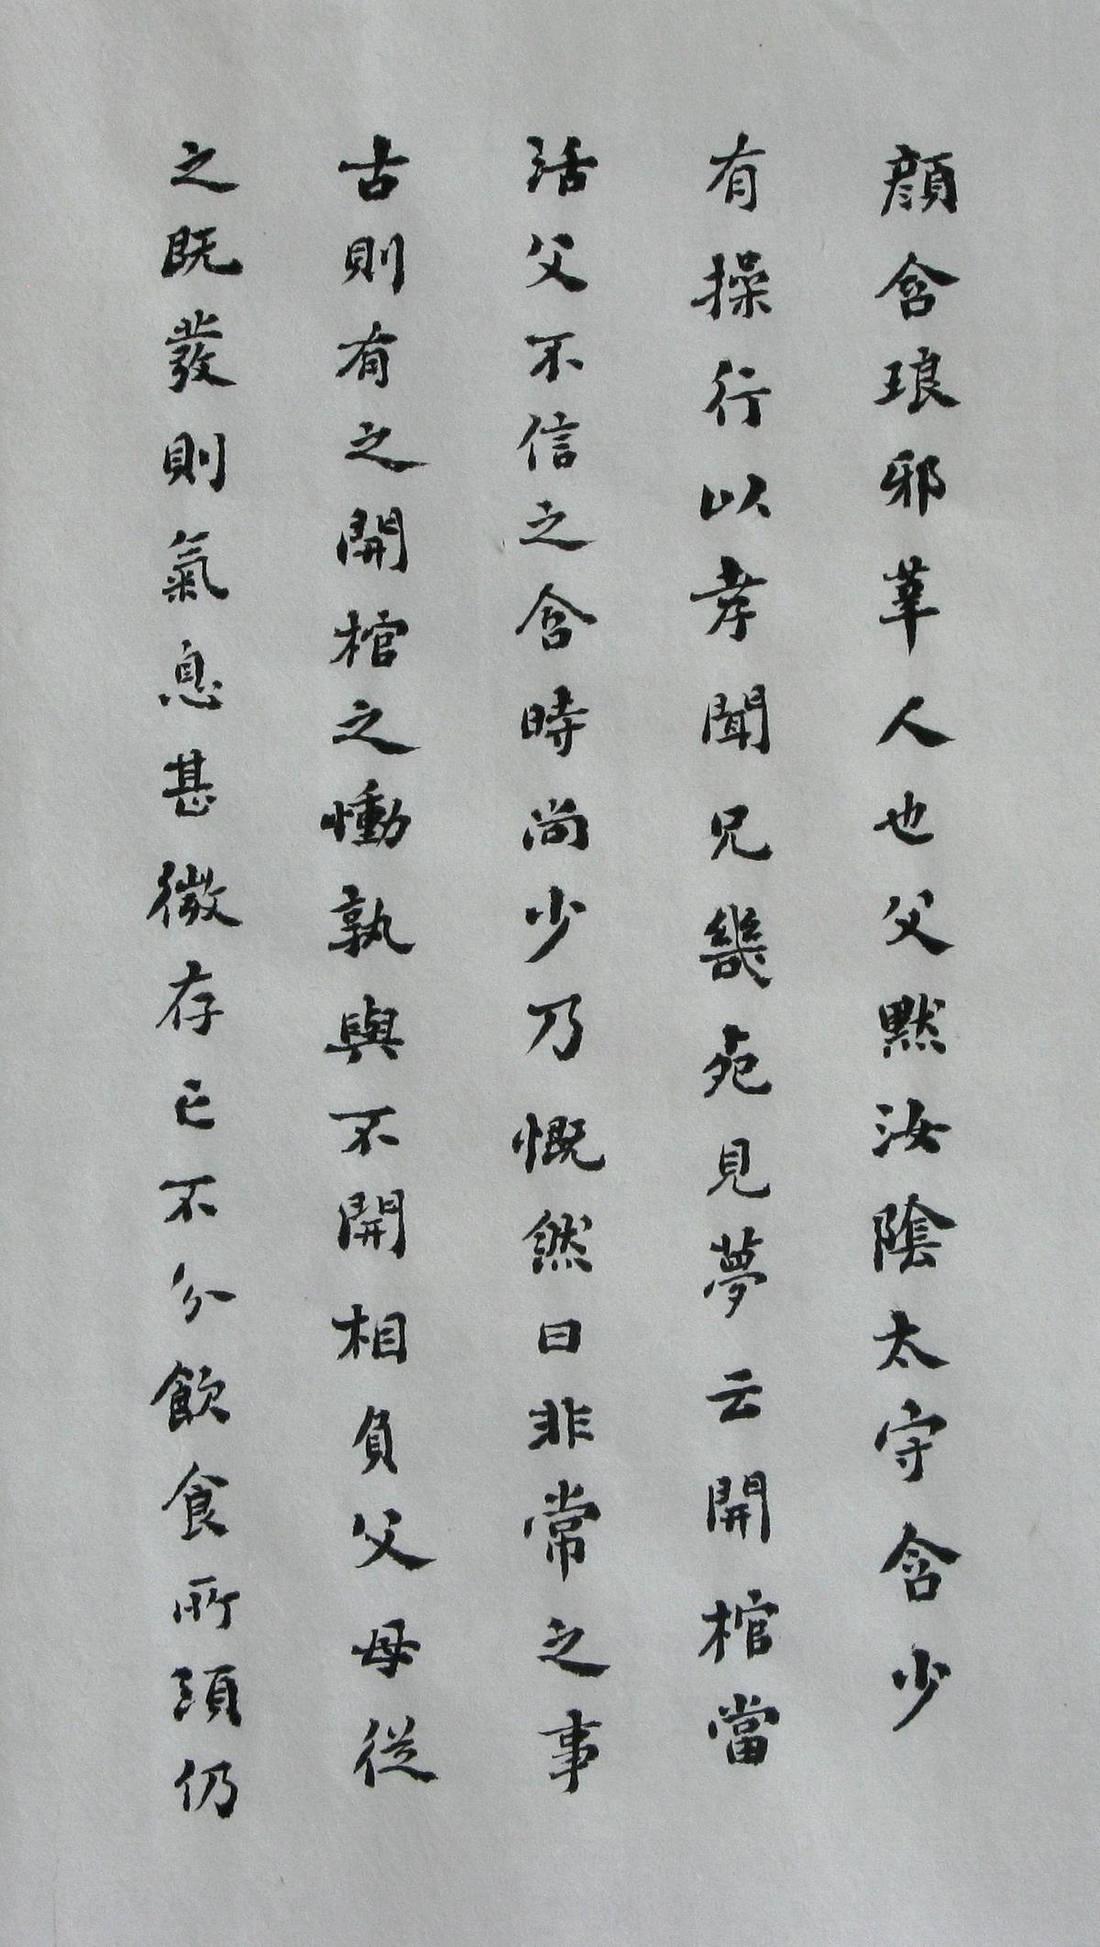 顔含琅邪莘人也父黙汝陰太守含少
有操行以孝聞兄畿死見夢云開棺當
活父不信之含時尚少乃慨然曰非常之事
古則有之開棺之慟孰與不開相負父母從
之既發則氣息甚微存亡不分飲食所須仍